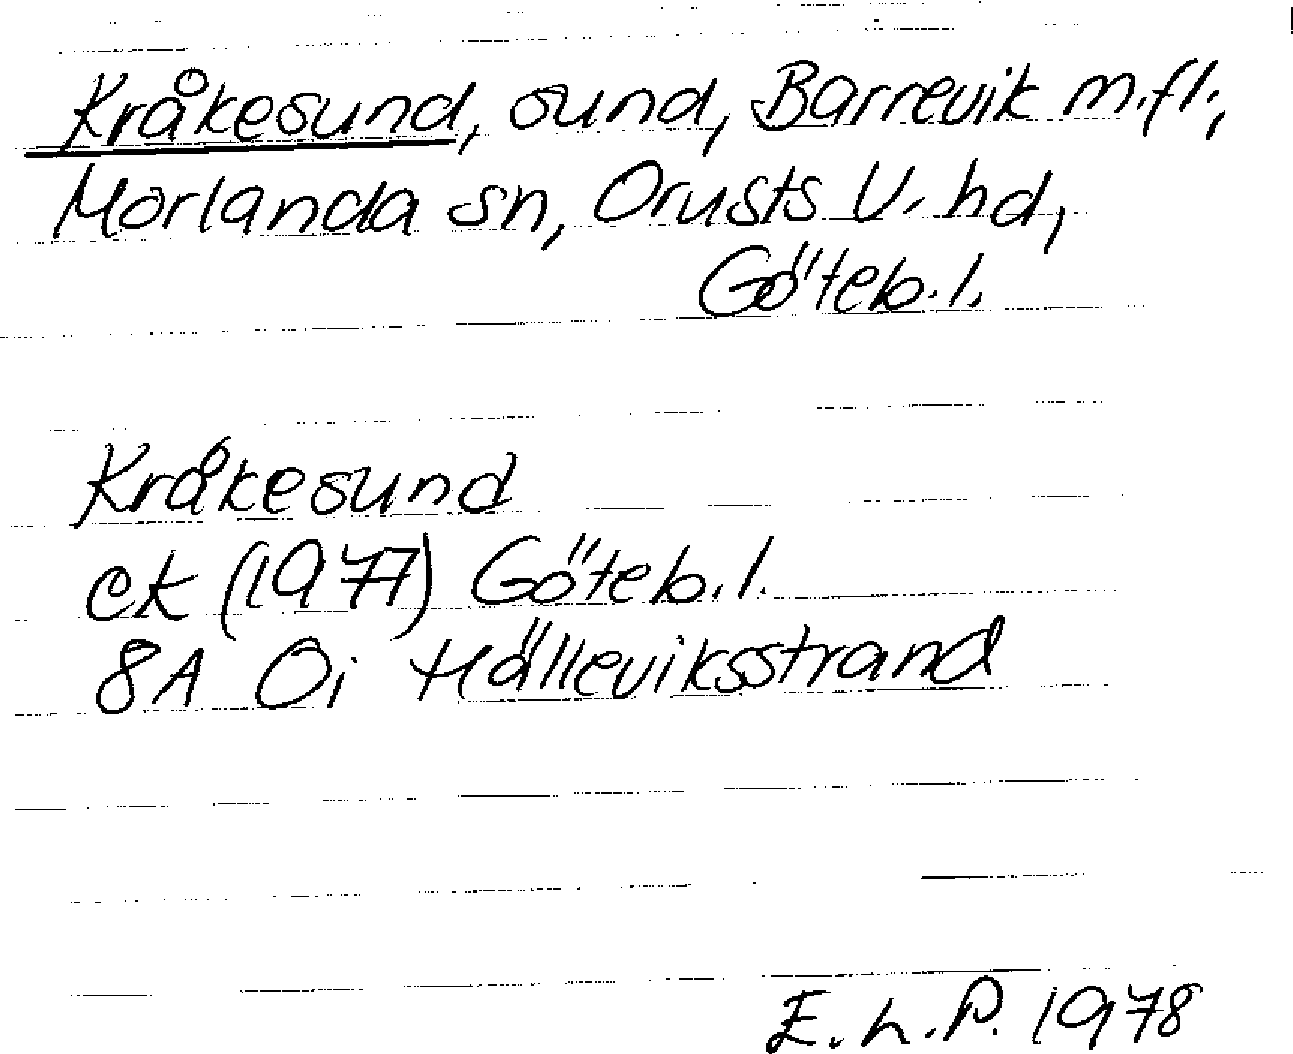 Kråkesund, sund, Barrevik m.fl.,
Morlanda sn, Orusts V. hd,
Göteb.l.
Kråkesund
ek (1977) Göteb.l.
8A 0i Hälleviksstrand
E.h.P. 1978